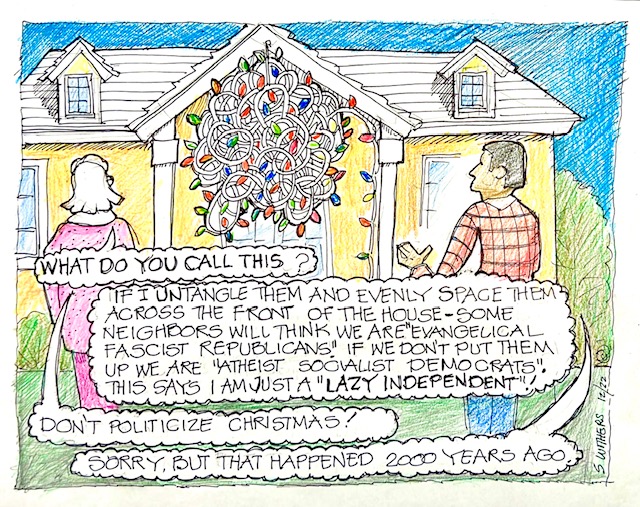 WHAT DO YOU CALL THIS ?
IF I UNTANGLE THEM AND EVENLY SPACE THEM
ACROSS THE FRONT OF THE HOUSE - SOME
NEIGHBORS WILL THINK WE ARE "EVANGELICAL
FASCIST REPUBLICANS". IF WE DON'T PUT THEM
UP WE ARE "ATHEIST SOCIALIST DEMOCRATS".
THIS SAYS I AM JUST A "LAZY INDEPENDENT"!
DON'T POLITICIZE CHRISTMAS!
SORRY, BUT THAT HAPPENED 2000 YEARS AGO.
S WITHERS 12/22 ©